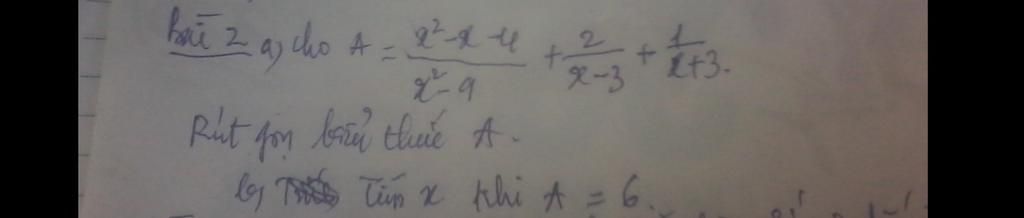 Bài 2 a, cho A = \frac{x²-x-4}{x²-9} + \frac{2}{x-3} + \frac{1}{x+3}.
Rút gọn biểu thức A.
b, Tìm x khi A = 6.